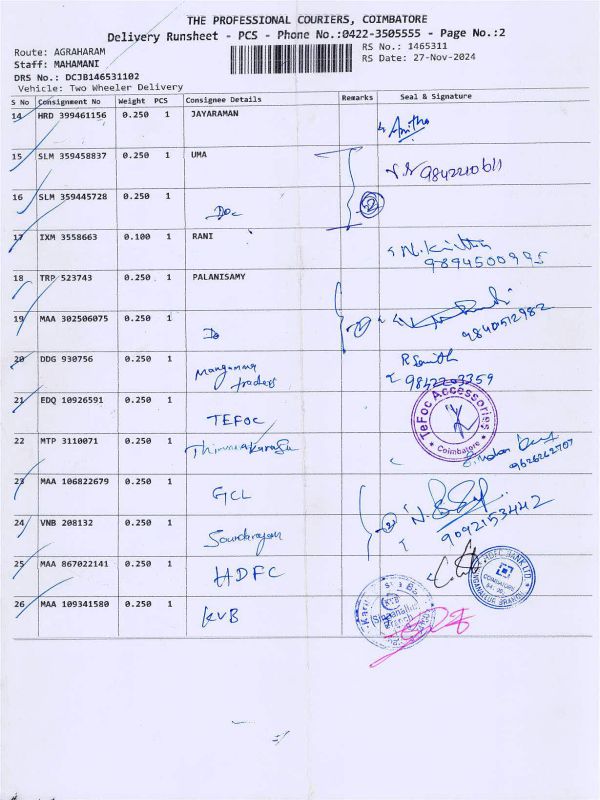 THE PROFESSIONAL COURIERS, COIMBATORE
Delivery Runsheet - PCS - Phone No.:0422-3505555 - Page No.:2
Route: AGRAHARAM
RS No.: 1465311
Staff: MAHAMANI
RS Date: 27-Nov-2024
DRS No.: DCJB146531102
Vehicle: Two Wheeler Delivery
S No Consignment No Weight PCS Consignee Details Remarks Seal & Signature
14 HRD 399461156 0.250 1 JAYARAMAN
Anitha
15 SLM 359458837 0.250 1 UMA
9842210611
16 SLM 359445728 0.250 1
Doc
17 IXM 3558663 0.100 1 RANI
9894500995
18 TRP 523743 0.250 1 PALANISAMY
19 MAA 302506075 0.250 1
Do
9840512982
20 DDG 930756 0.250 1
Mangamma traders
9842203359
21 EDQ 10926591 0.250 1 TEFOC
TeFoc Accessories
Coimbatore
22 MTP 3110071 0.250 1
9626262707
23 MAA 106822679 0.250 1 GCL
9092153442
24 VNB 208132 0.250 1
Soundarajan
25 MAA 867022141 0.250 1 HDFC
HDFC BANK LTD
COIMBATORE
26 MAA 109341580 0.250 1 KVB
KVB
Branch